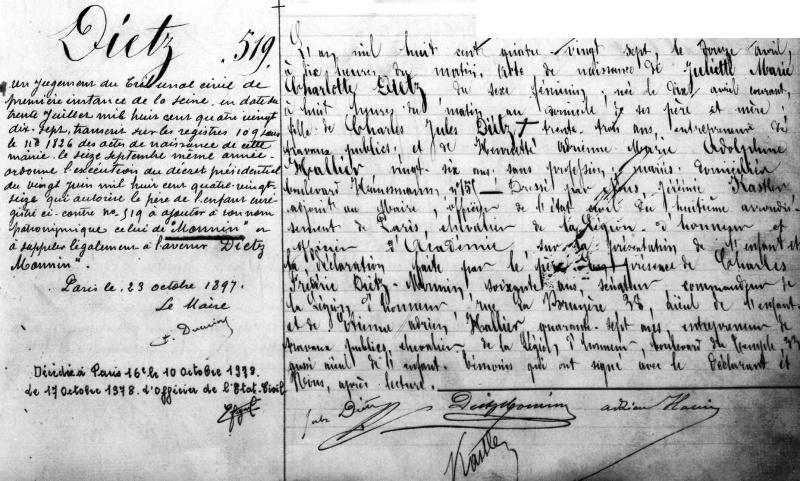 Dietz 519.
Un jugement du Tribunal civil de
première instance de la Seine, en date du
trente Juillet mil huit cent quatre vingt
dix-sept, transcrit sur les registres 109 sous
le no 1826 des actes de naissance de cette
mairie le seize septembre même année
ordonne l'exécution du décret présidentiel
du vingt Juin mil huit cent quatre-vingt-
seize qui autorise le père de l'enfant enre-
gistré ci-contre no 519 à ajouter à son nom
patronymique celui de "Monnin" et
à s'appeler légalement à l'avenir "Dietz
Monnin".
Paris le 23 octobre 1897.
Le Maire
Décédée à Paris 16e le 10 Octobre 1978.
Le 17 Octobre 1978. L'Officier de l'Etat-Civil
L'an mil huit cent quatre-vingt sept, le douze avril,
à dix heures du matin, Acte de naissance de Juliette Marie
Charlotte Dietz du sexe féminin, née le dix avril courant,
à huit heures du matin au domicile de ses père et mère;
fille de Charles Jules Dietz + trente trois ans, entrepreneur de
travaux publics, et de Henriette Adrienne Marie Adolphine
Hallier vingt six ans sans profession, mariés, domiciliés
boulevard Haussmann, Dressé par nous, Jérémie Kastler
adjoint au Maire, officier de l'état civil du huitième arrondis-
sement de Paris, chevalier de la Légion d'honneur et
officier d'Académie, sur la présentation de l'enfant et
la déclaration faite par le père en présence de Charles
Frédéric Dietz-Monnin, soixante ans, sénateur, commandeur de
la Légion d'honneur, rue La Bruyère 38, aïeul de l'enfant
et de Etienne Adrien Hallier quarante-sept ans, entrepreneur de
travaux publics, chevalier de la Légion d'honneur, boulevard du Temple, 33
aussi aïeul de l'enfant. Témoins qui ont signé avec le déclarant et
Nous, après lecture.
Jules Dietz Dietz Monnin adrien Hallier
Kastler